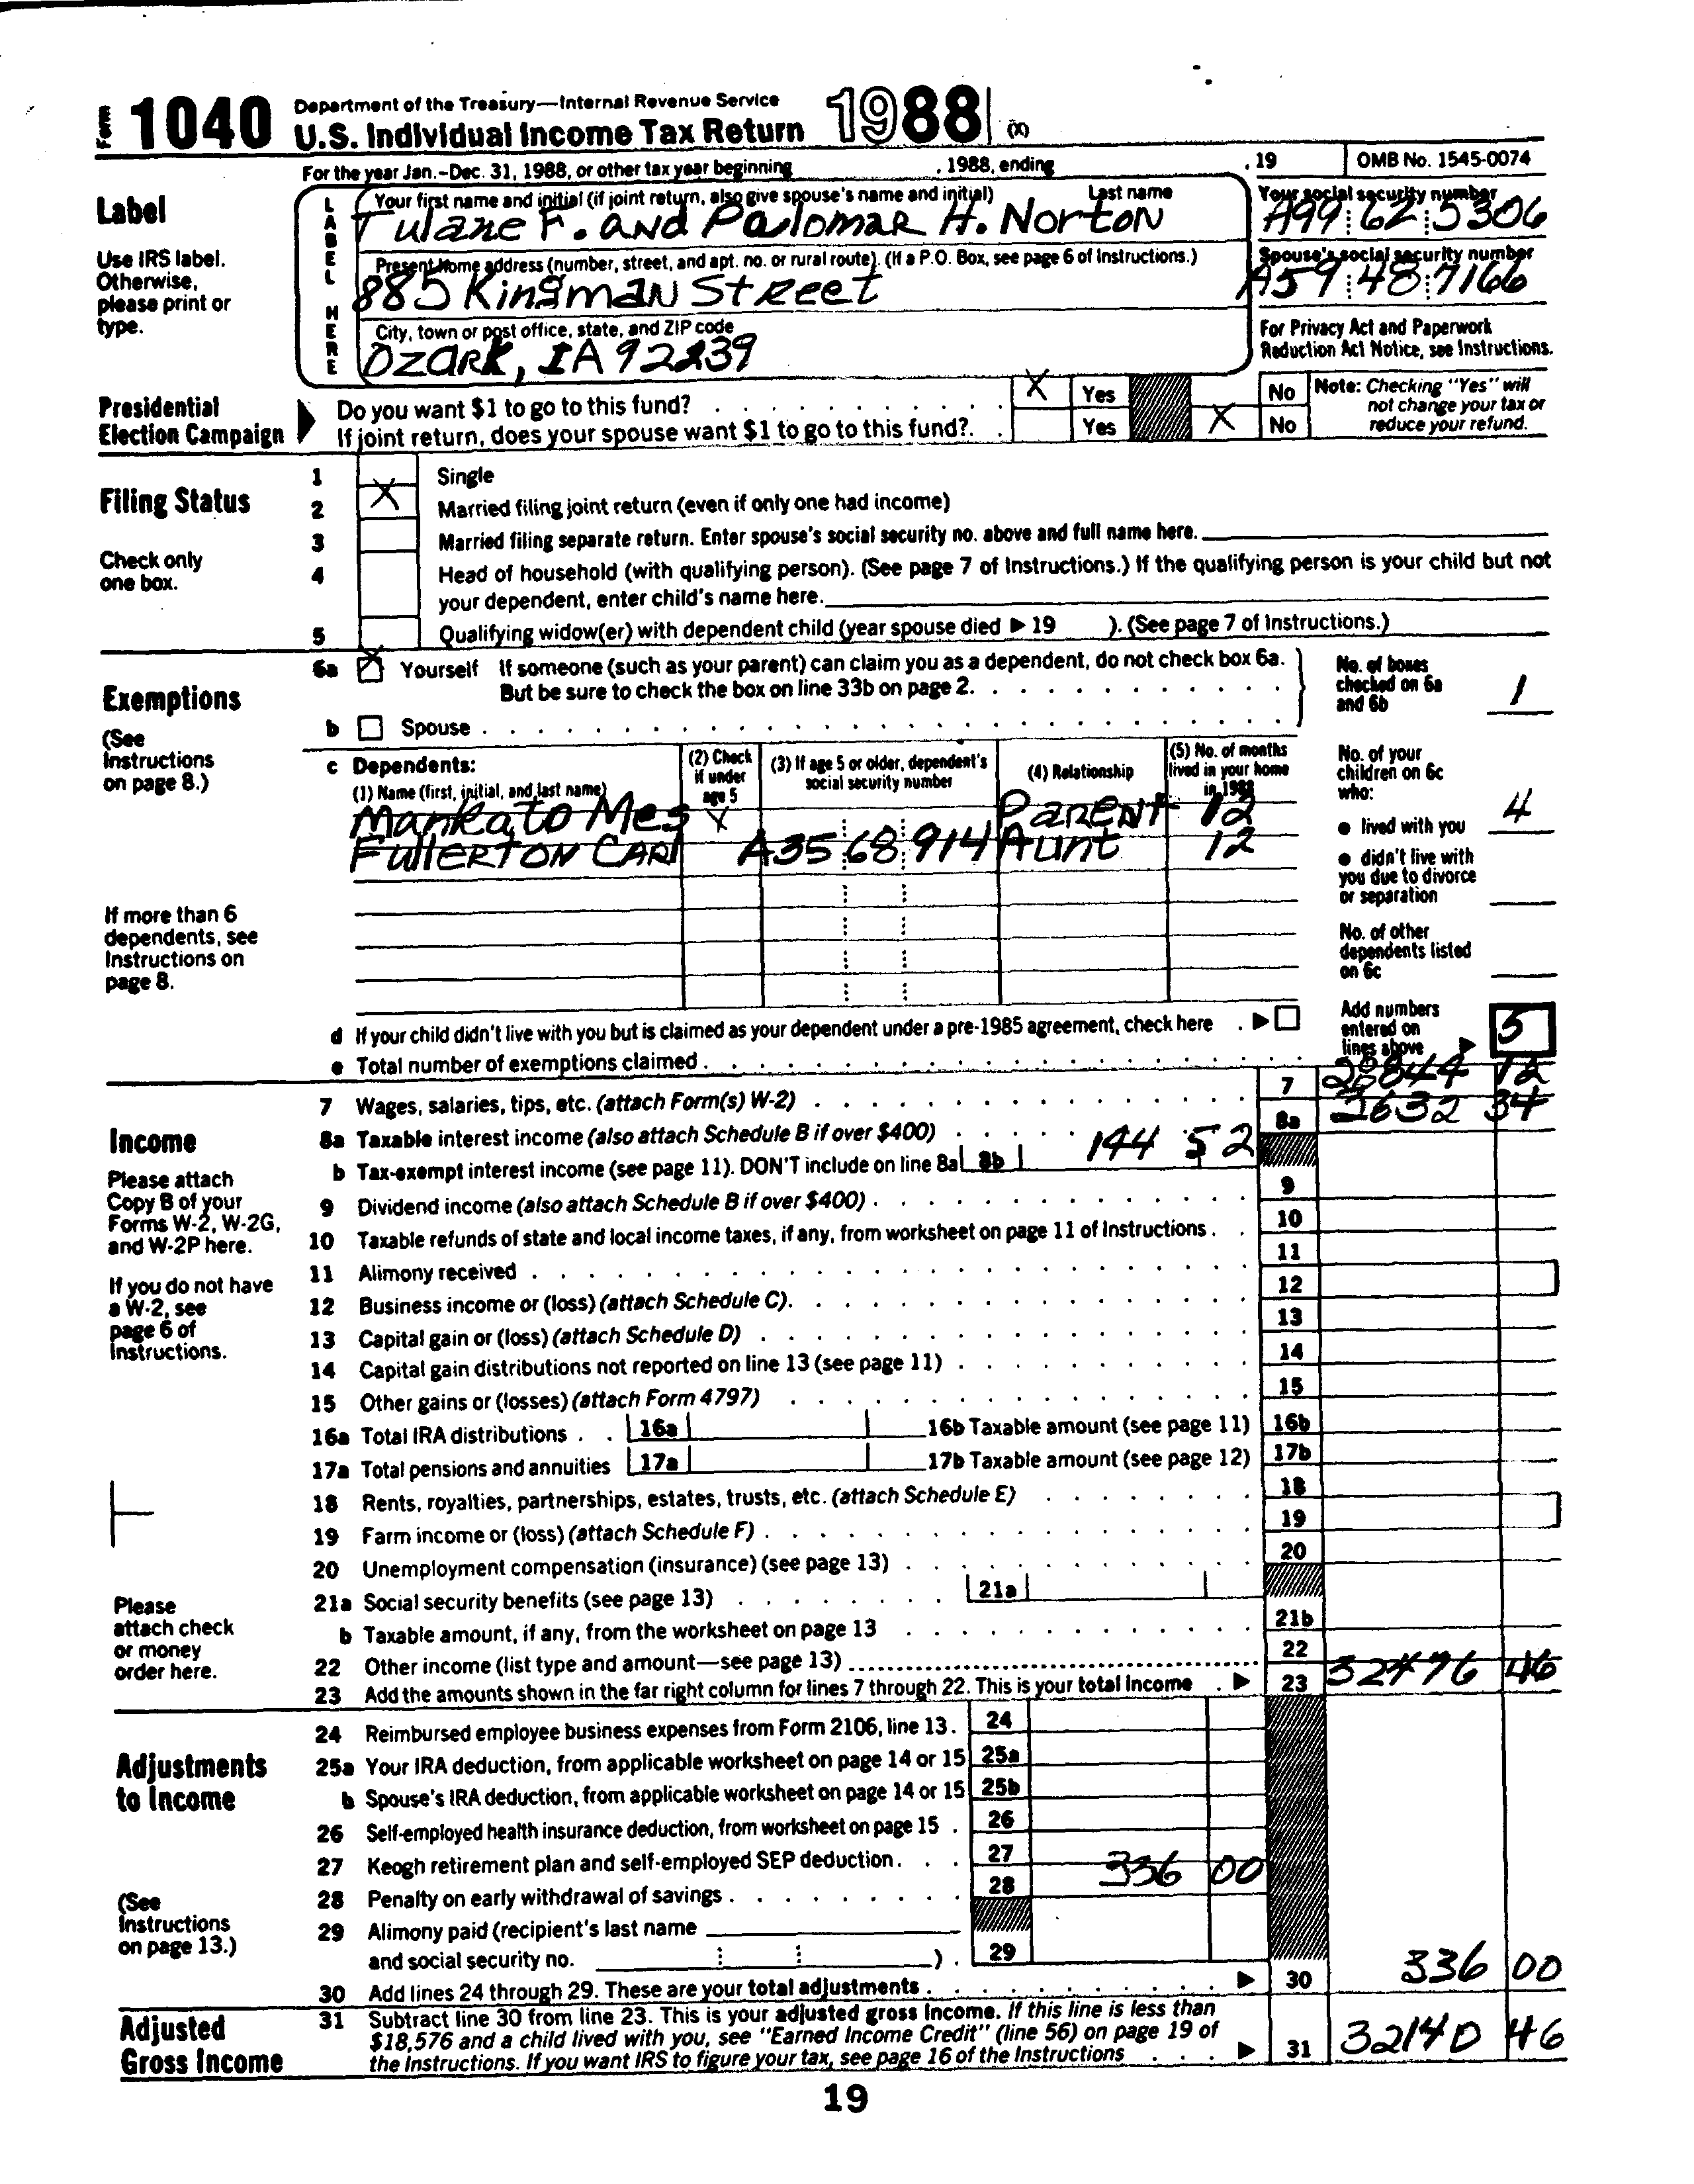 Form 1040 Department of the Treasury—Internal Revenue Service
U.S. Individual Income Tax Return 1988 (X)
For the year Jan.–Dec. 31, 1988, or other tax year beginning , 1988, ending , 19 OMB No. 1545-0074
Label
Use IRS label.
Otherwise,
please print or
type.
LABEL HERE
Your first name and initial (if joint return, also give spouse's name and initial) Last name
Tulane F. and Palomar H. Norton
Your social security number
A99 62 5306
Present home address (number, street, and apt. no. or rural route). (If a P.O. Box, see page 6 of Instructions.)
885 Kingman Street
Spouse's social security number
A59 48 7166
City, town or post office, state, and ZIP code
Ozark, IA 92239
For Privacy Act and Paperwork
Reduction Act Notice, see Instructions.
Presidential
Election Campaign
Do you want $1 to go to this fund? X Yes No
If joint return, does your spouse want $1 to go to this fund? Yes X No
Note: Checking "Yes" will
not change your tax or
reduce your refund.
Filing Status
Check only
one box.
1 Single
2 X Married filing joint return (even if only one had income)
3 Married filing separate return. Enter spouse's social security no. above and full name here.
4 Head of household (with qualifying person). (See page 7 of Instructions.) If the qualifying person is your child but not
your dependent, enter child's name here.
5 Qualifying widow(er) with dependent child (year spouse died ▶ 19 ). (See page 7 of Instructions.)
Exemptions
(See
Instructions
on page 8.)
If more than 6
dependents, see
Instructions on
page 8.
6a X Yourself If someone (such as your parent) can claim you as a dependent, do not check box 6a.
But be sure to check the box on line 33b on page 2.
b Spouse
No. of boxes
checked on 6a
and 6b 1
c Dependents:
(1) Name (first, initial, and last name)
(2) Check
if under
age 5
(3) If age 5 or older, dependent's
social security number
(4) Relationship
(5) No. of months
lived in your home
in 1988
Mankato Mes X Parent 12
Fullerton Cari A35 68 914 Aunt 12
No. of your
children on 6c
who:
● lived with you 4
● didn't live with
you due to divorce
or separation
No. of other
dependents listed
on 6c
d If your child didn't live with you but is claimed as your dependent under a pre-1985 agreement, check here ▶
e Total number of exemptions claimed
Add numbers
entered on
lines above ▶ 5
Income
Please attach
Copy B of your
Forms W-2, W-2G,
and W-2P here.
If you do not have
a W-2, see
page 6 of
Instructions.
Please
attach check
or money
order here.
7 Wages, salaries, tips, etc. (attach Form(s) W-2) 7 28844 12
8a Taxable interest income (also attach Schedule B if over $400) 8a 3632 34
b Tax-exempt interest income (see page 11). DON'T include on line 8a 8b 144 52
9 Dividend income (also attach Schedule B if over $400) 9
10 Taxable refunds of state and local income taxes, if any, from worksheet on page 11 of Instructions 10
11 Alimony received 11
12 Business income or (loss) (attach Schedule C) 12
13 Capital gain or (loss) (attach Schedule D) 13
14 Capital gain distributions not reported on line 13 (see page 11) 14
15 Other gains or (losses) (attach Form 4797) 15
16a Total IRA distributions 16a 16b Taxable amount (see page 11) 16b
17a Total pensions and annuities 17a 17b Taxable amount (see page 12) 17b
18 Rents, royalties, partnerships, estates, trusts, etc. (attach Schedule E) 18
19 Farm income or (loss) (attach Schedule F) 19
20 Unemployment compensation (insurance) (see page 13) 20
21a Social security benefits (see page 13) 21a
b Taxable amount, if any, from the worksheet on page 13 21b
22 Other income (list type and amount—see page 13) 22
23 Add the amounts shown in the far right column for lines 7 through 22. This is your total income ▶ 23 32476 46
Adjustments
to Income
(See
Instructions
on page 13.)
24 Reimbursed employee business expenses from Form 2106, line 13. 24
25a Your IRA deduction, from applicable worksheet on page 14 or 15 25a
b Spouse's IRA deduction, from applicable worksheet on page 14 or 15 25b
26 Self-employed health insurance deduction, from worksheet on page 15 26
27 Keogh retirement plan and self-employed SEP deduction 27
28 Penalty on early withdrawal of savings 28 336 00
29 Alimony paid (recipient's last name
and social security no. ) 29
30 Add lines 24 through 29. These are your total adjustments ▶ 30 336 00
Adjusted
Gross Income
31 Subtract line 30 from line 23. This is your adjusted gross income. If this line is less than
$18,576 and a child lived with you, see "Earned Income Credit" (line 56) on page 19 of
the Instructions. If you want IRS to figure your tax, see page 16 of the Instructions ▶ 31 32140 46
19